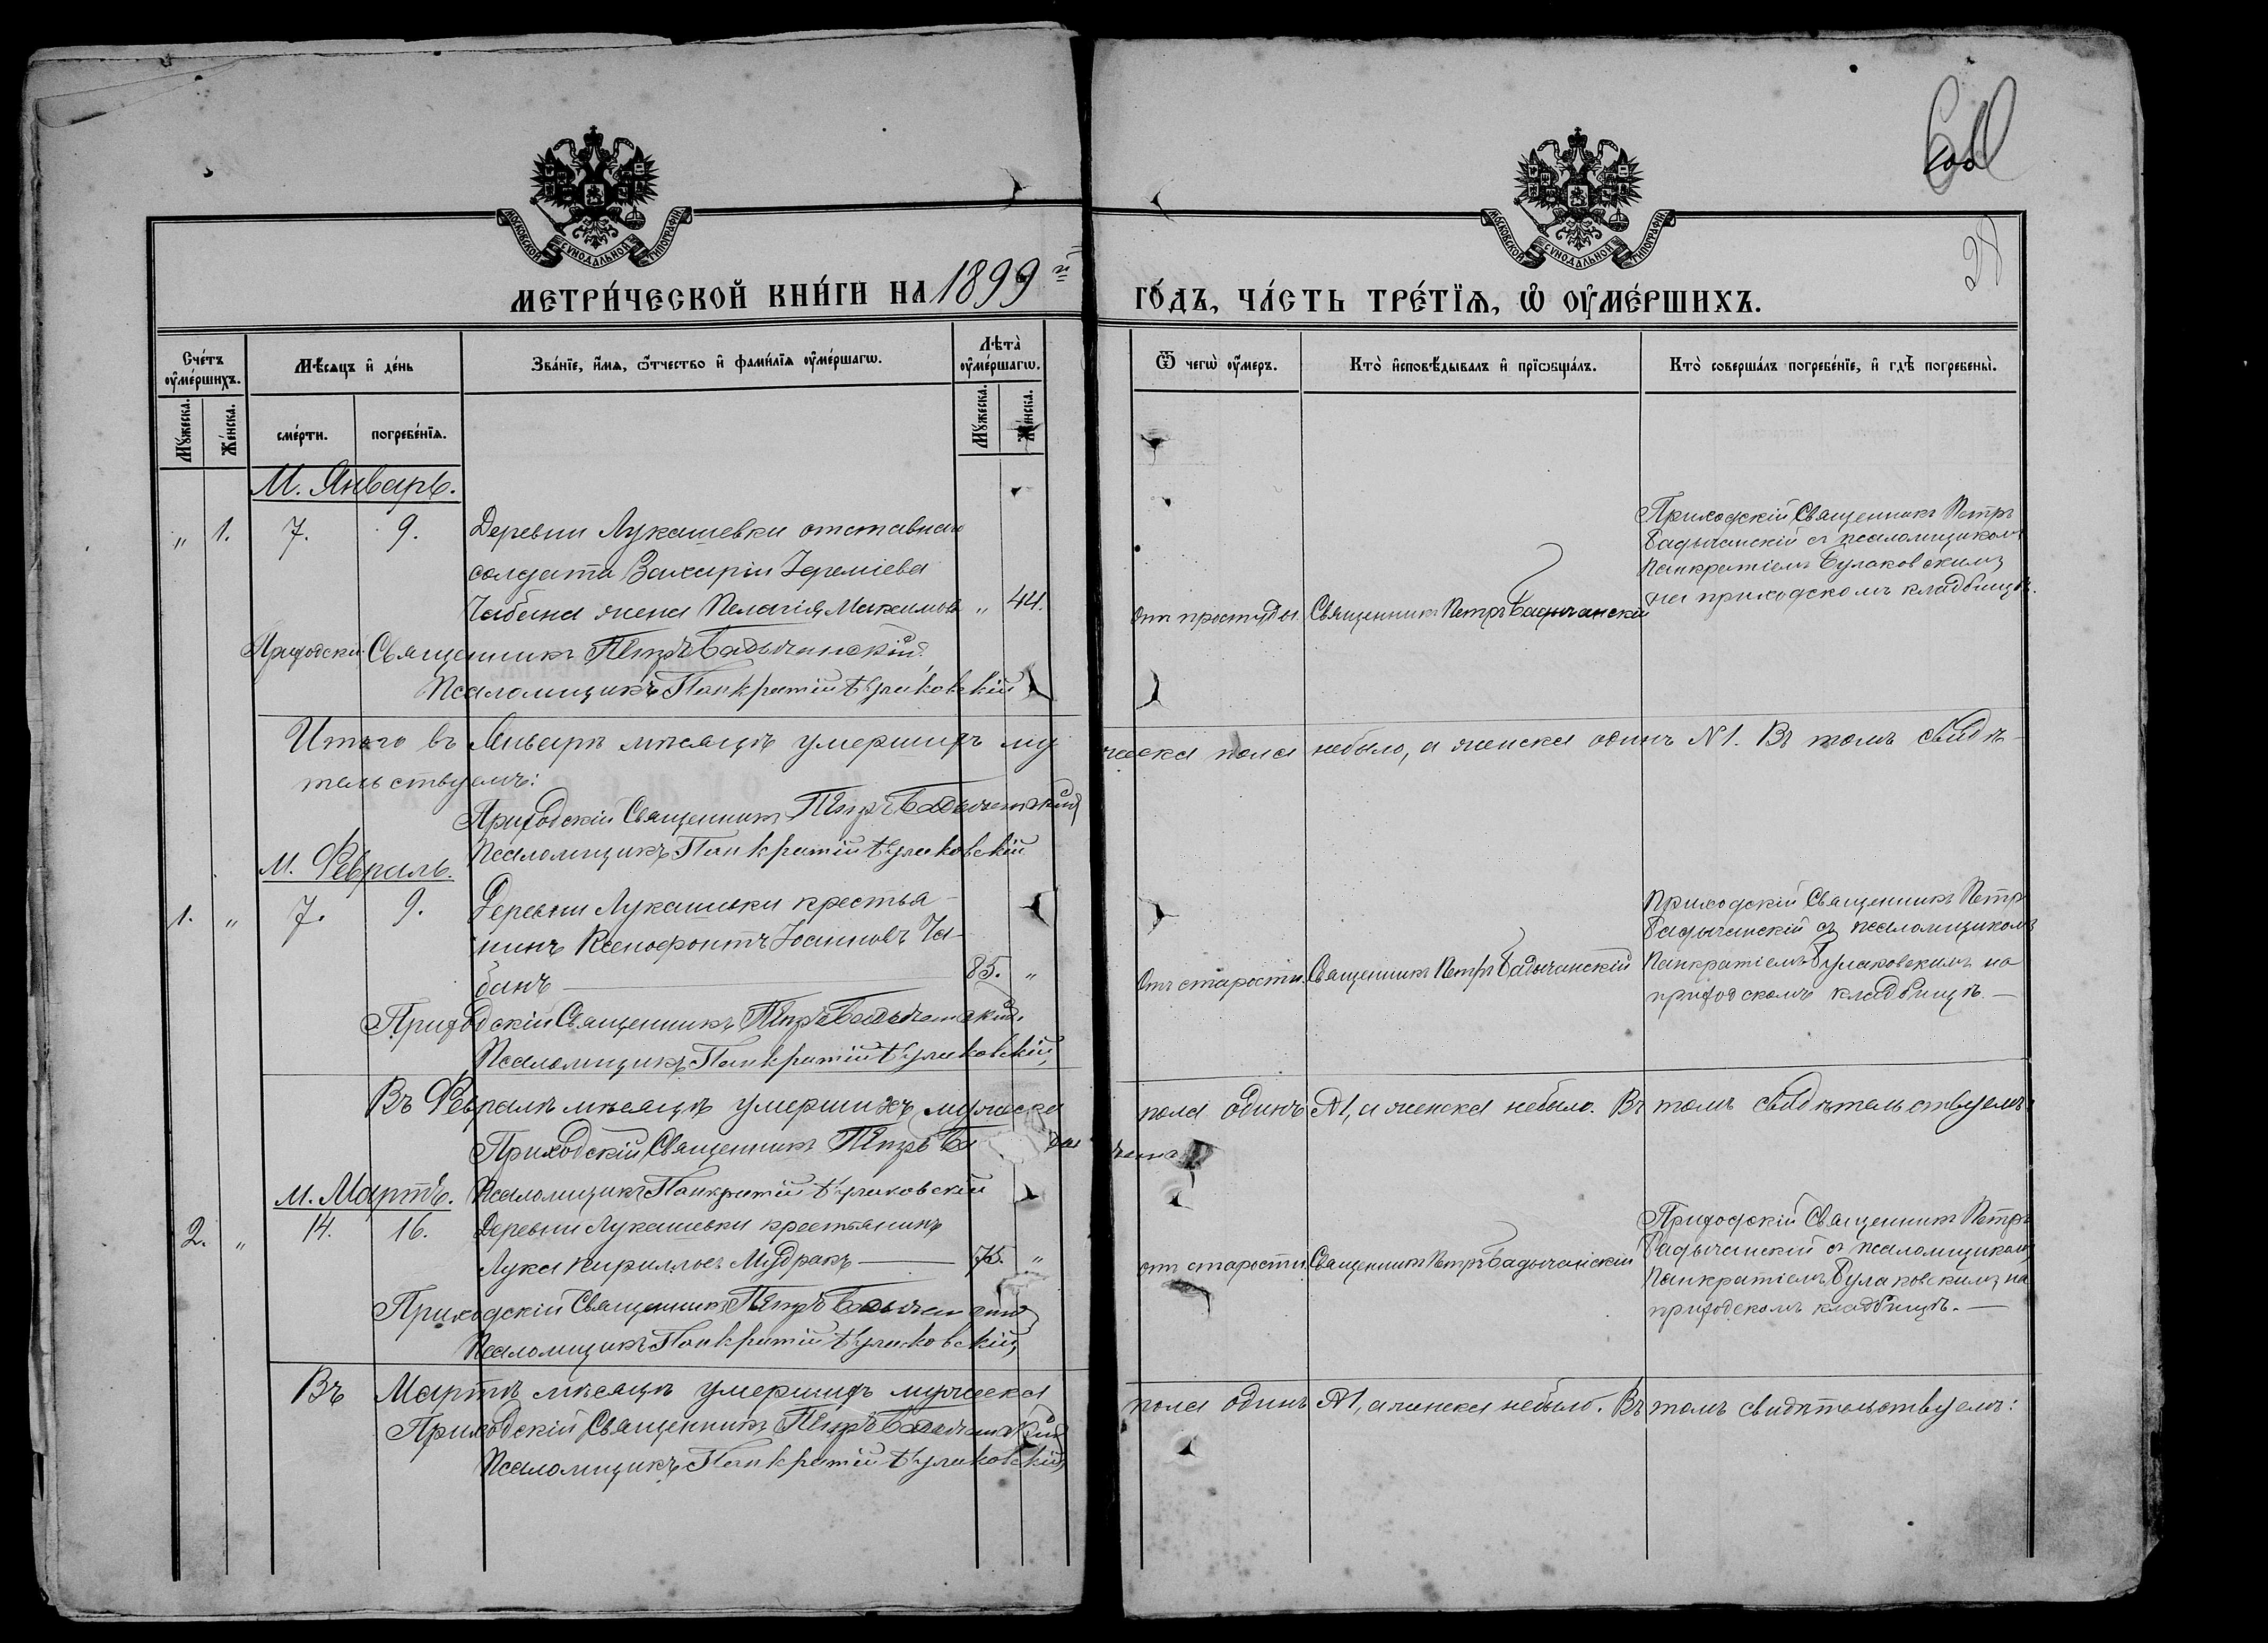 28
МОСКОВСКОЙ СѴНОДАЛЬНОЙ ТИПОГРАФІИ
МОСКОВСКОЙ СѴНОДАЛЬНОЙ ТИПОГРАФІИ
МЕТРИ́ЧЕСКОЙ КНИ́ГИ НА 1899й ГО́ДЪ, ЧА́СТЬ ТРЕ́ТЇѦ, Ѡ҆ ОУ҆МЕ́РШИХЪ.
Сче́тъ оу҆ме́ршихъ.
Мꙋ́жеска.
Же́нска.
Мѣ́сѧцъ и҆ де́нь
сме́рти.
погребе́нїѧ.
Зва́нїе, и҆́мѧ, ѻ҆́тчество и҆ фами́лїѧ оу҆ме́ршагѡ.
Лѣта̀ оу҆ме́ршагѡ.
Мꙋ́жеска.
Же́нска.
Ѿ чегѡ̀ оу҆́меръ.
Кто̀ и҆сповѣ́дывалъ и҆ прїѡбща́лъ.
Кто̀ соверша́лъ погребе́нїе, и҆ гдѣ̀ погребены̀.
М. Январь.
„ 1. 7. 9. Деревни Лукашевки отставнаго
солдата Захаріи Іереміева
Чабана жена Пелагія Максимова „ 44.
Отъ простуды. Священникъ Петръ Бадычанскій
Приходскій Священникъ Петръ
Бадычанскій съ псаломщикомъ
Панкратіемъ Булаковскимъ
на приходскомъ кладбищѣ.
Приходскій Священникъ Петръ Бадычанскій.
Псаломщикъ Панкратій Булаковскій
Итого въ Январѣ мѣсяцѣ умершихъ мужеска пола небыло, а женска одинъ №1. Въ томъ свидѣ-
тельствуемъ:
Приходскій Священникъ Петръ Бадычанскій
Псаломщикъ Панкратій Булаковскій
М. Февраль.
1. „ 7. 9. Деревни Лукашевки крестья-
нинъ Ксенофонтъ Іоанновъ Ча-
банъ 85. „
Отъ старости. Священникъ Петръ Бадычанскій
Приходскій Священникъ Петръ
Бадычанскій съ псаломщикомъ
Панкратіемъ Булаковскимъ на
приходскомъ кладбищѣ. —
Приходскій Священникъ Петръ Бадычанскій.
Псаломщикъ Панкратій Булаковскій
Въ Февралѣ мѣсяцѣ умершихъ мужеска пола одинъ №1, а женска небыло. Въ томъ свидѣтельствуемъ:
Приходскій Священникъ Петръ
Псаломщикъ Панкратій Булаковскій
М. Мартъ.
2. „ 14. 16. Деревни Лукашевки крестьянинъ
Лука Кирилловъ Мудракъ — 75. „
отъ старости. Священникъ Петръ Бадычанскій
Приходскій Священникъ Петръ
Бадычанскій съ псаломщикомъ
Панкратіемъ Булаковскимъ на
приходскомъ кладбищѣ. —
Приходскій Священникъ Петръ Бадычанскій
Псаломщикъ Панкратій Булаковскій
Въ Мартѣ мѣсяцѣ умершихъ мужеска пола одинъ №1, а женска небыло. Въ томъ свидѣтельствуемъ:
Приходскій Священникъ Петръ Бадычанскій
Псаломщикъ Панкратій Булаковскій